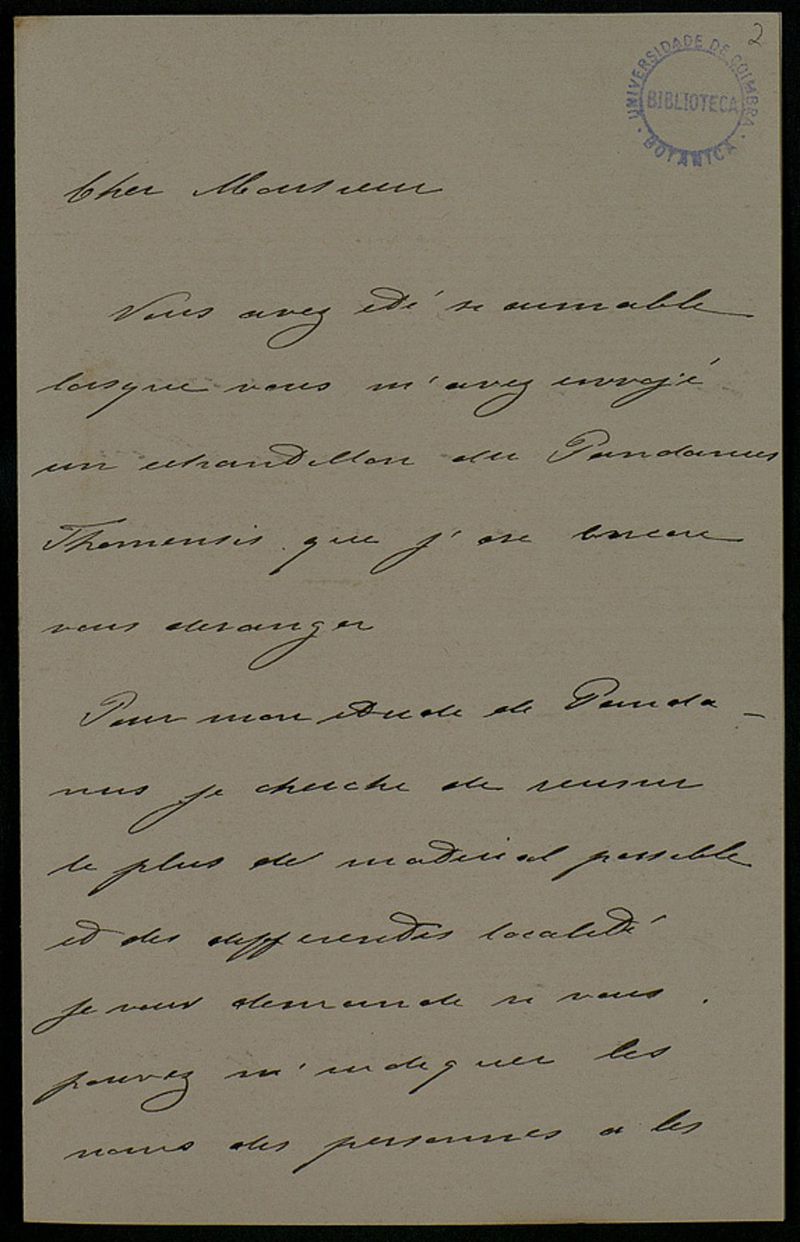 2
UNIVERSIDADE DE COIMBRA
BIBLIOTECA
BOTANICA
Cher Monsieur
Vous avez été si aimable
lorsque vous m'avez envojé
un echantillon du Pandanus
Thomensis que j'ose encore
vous deranger
Pour mon etude de Panda-
nus je cherche de reunir
le plus de material possible
et des differentes localité
je vous demande si vous
pouvez m'indiquer les
noms des personnes a les